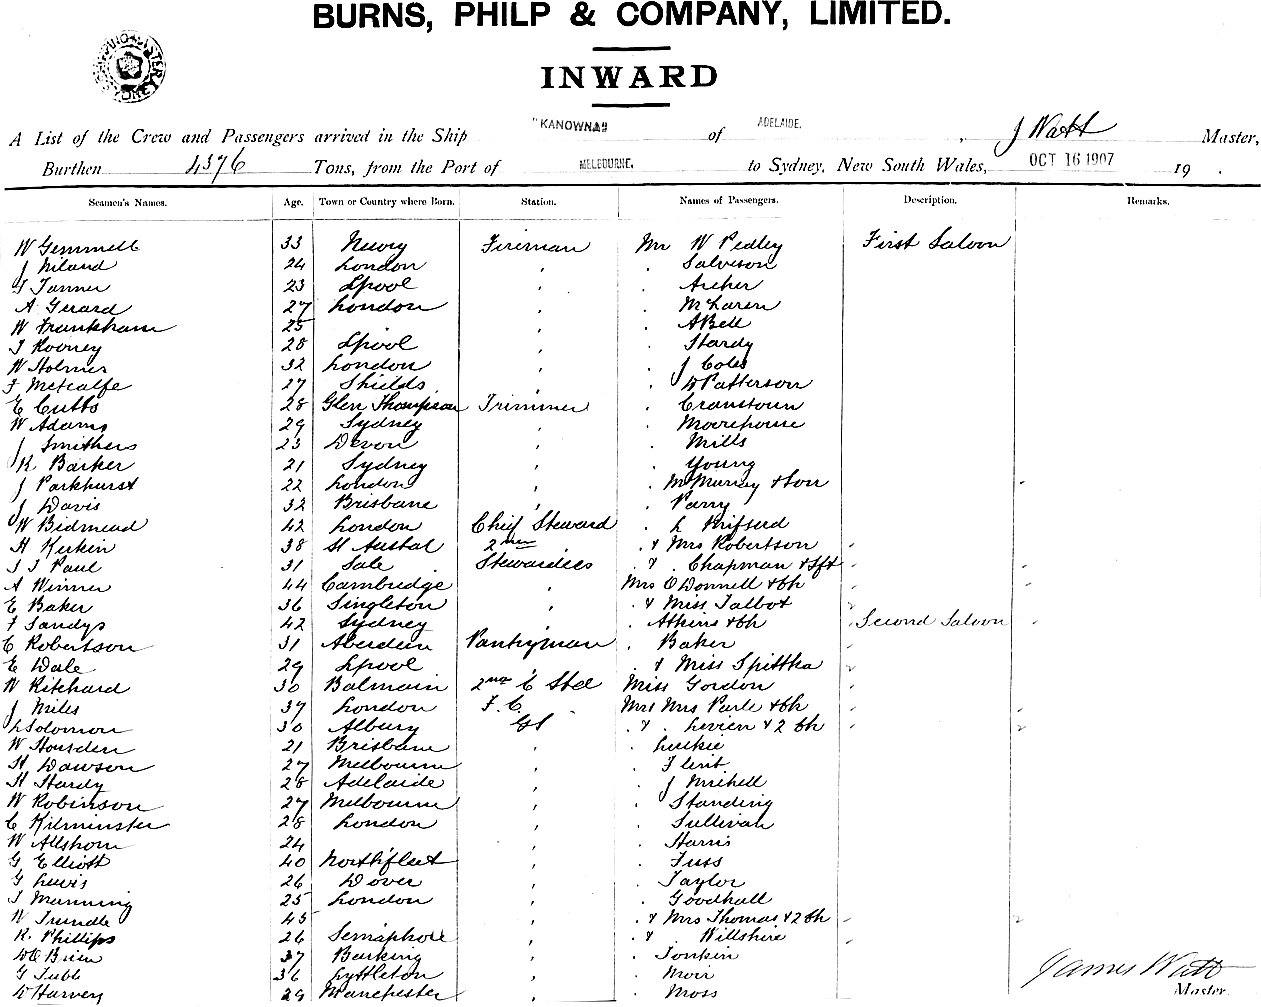 BURNS, PHILP & COMPANY, LIMITED.
INWARD
A List of the Crew and Passengers arrived in the Ship "KANOWNA" of ADELAIDE. , J Watt Master,
Burthen 4376 Tons, from the Port of MELBOURNE. to Sydney, New South Wales, OCT 16 1907 19 .
Seamen's Names. Age. Town or Country where Born. Station. Names of Passengers. Description. Remarks.
W Gemmell 33 Newry Fireman Mr W Pedley First Saloon
J Niland 24 London " . Salveson
T Tanner 23 Lpool " . Archer
A Gerard 27 London " . McLaren
W Frankham 25 " . A Bell
T Rooney 28 Lpool " . Hardy
W Holmes 32 London " . J Coles
F Metcalfe 27 Shields " . D Patterson
E Cutts 28 Glen Thompson Trimmer . Cranstoun
W Adams 29 Sydney " . Moorehouse
J Smithers 23 Devon " . Mills
R Barker 21 Sydney " . Young
J Parkhurst 22 London " . McMurray & Son
J Davis 32 Brisbane " . Parry
W Bidmead 42 London Chief Steward . L
H 38 St Austal 2nd . & Mrs Robertson
J J Paul 31 Sale Stewardess & . Chapman &
A Winner 44 Cambridge " Mrs O'Donnell & ch
E Baker 36 Singleton " . & Miss Talbot
F Sandys 42 Sydney " . Atkins & ch Second Saloon
C Robertson 31 Aberdeen Pantryman . Baker
E Dale 29 Lpool " & Miss Spittka
W Ritchard 30 Balmain 2nd C Std Miss Gordon
J Miles 37 London F.C. Mr & Mrs & ch
L Solomon 30 Albury Gl . & . Levien & 2 ch
W Housden 21 Brisbane " . Luckie
H Dawson 27 Melbourne " . Flint
H Hardy 28 Adelaide " . J Mitchell
W Robinson 27 Melbourne " . Standing
C Kilminster 28 London " . Sullivan
W Allshorn 24 " . Harris
G Elliott 40 Northfleet " . Tuss
G Lewis 26 Dover " . Taylor
J Manning 25 London " . Goodhall
W Trundle 45 " . & Mrs Thomas & 2 ch
R. Phillips 26 Semaphore " . & Willshire
D O'Brien 37 Barking " . Tonkin
G Tubb 36 Lyttleton " . Moir
D Harvey 29 Manchester " . Moss
James Watt
Master.